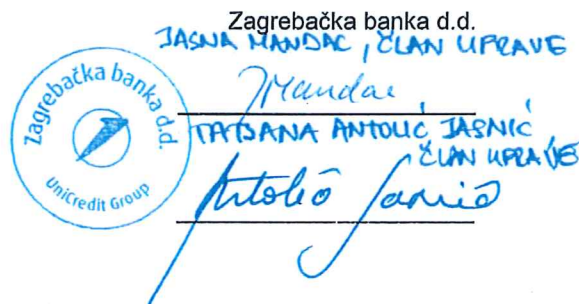 Zagrebačka banka d.d.
JASNA MANDAC, ČLAN UPRAVE
JMandac
TATJANA ANTOLIĆ JASNIĆ,
ČLAN UPRAVE
Antolić Jasnić
Zagrebačka banka d.d.
UniCredit Group